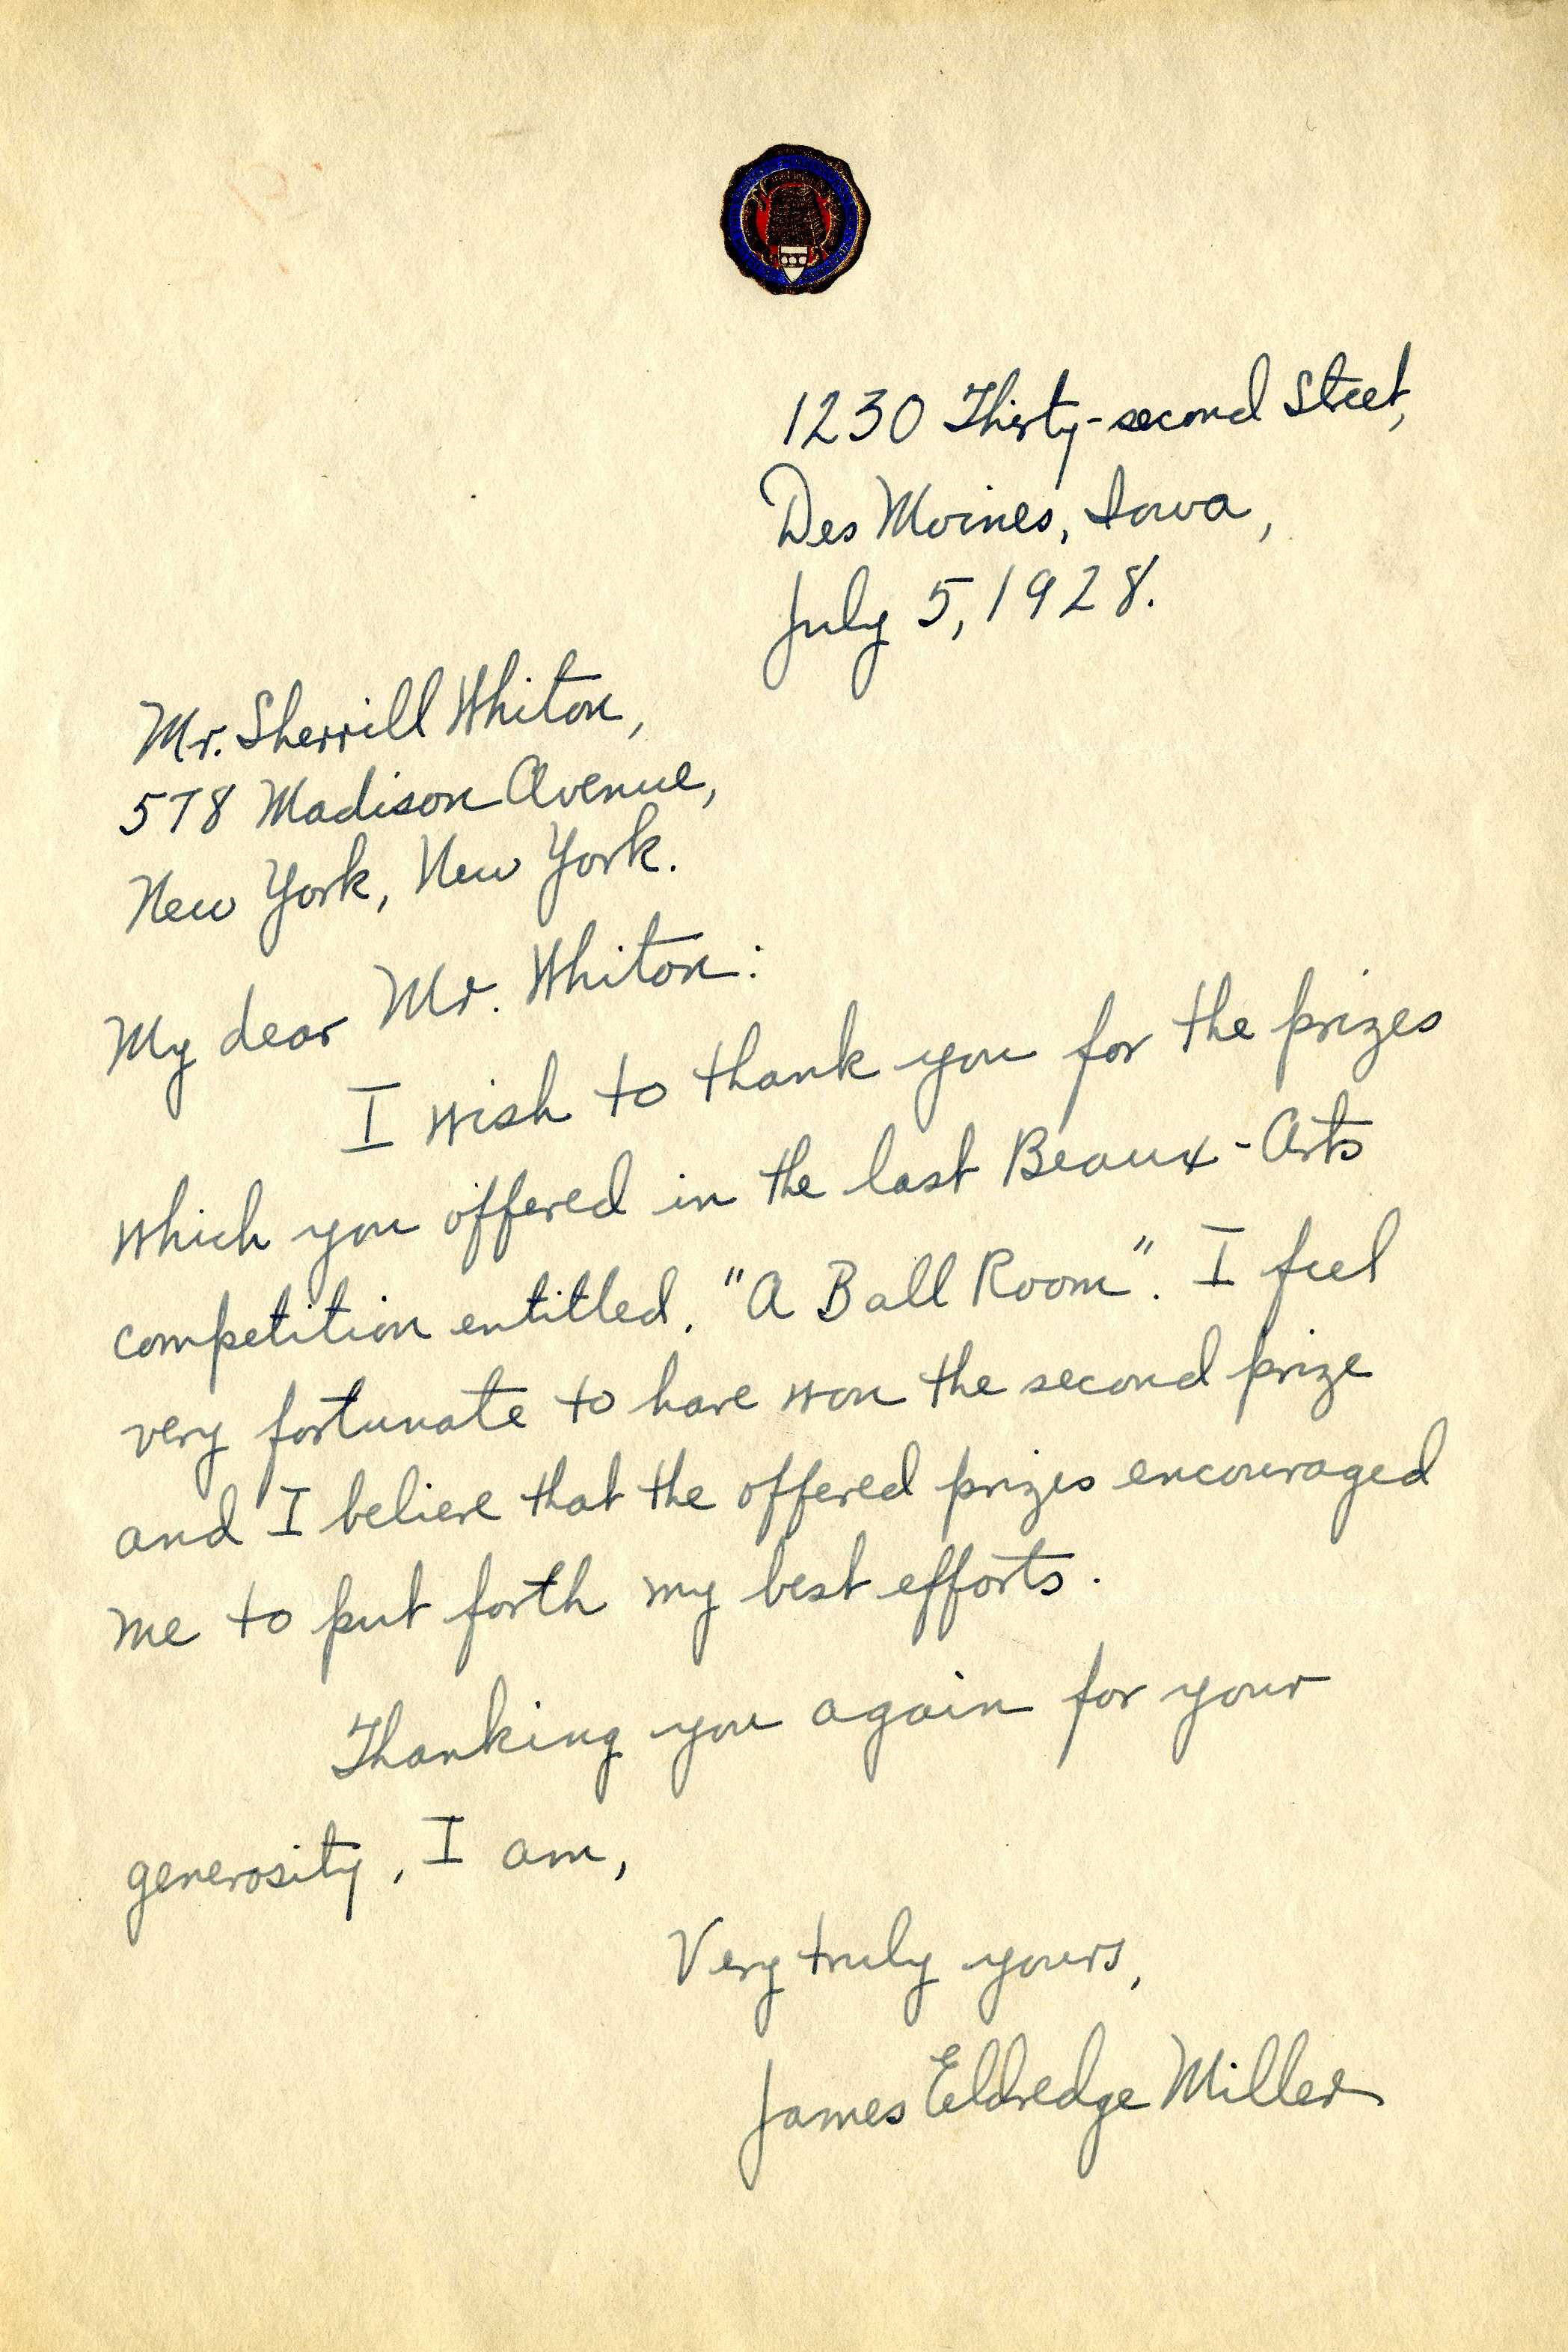 1230 Thirty-second Street,
Des Moines, Iowa,
July 5, 1928.
Mr. Sherrill Whiton,
578 Madison Avenue,
New York, New York.
My dear Mr. Whiton:
I wish to thank you for the prizes
which you offered in the last Beaux-Arts
competition entitled, "A Ball Room". I feel
very fortunate to have won the second prize
and I believe that the offered prizes encouraged
me to put forth my best efforts.
Thanking you again for your
generosity, I am,
Very truly yours,
James Eldredge Miller